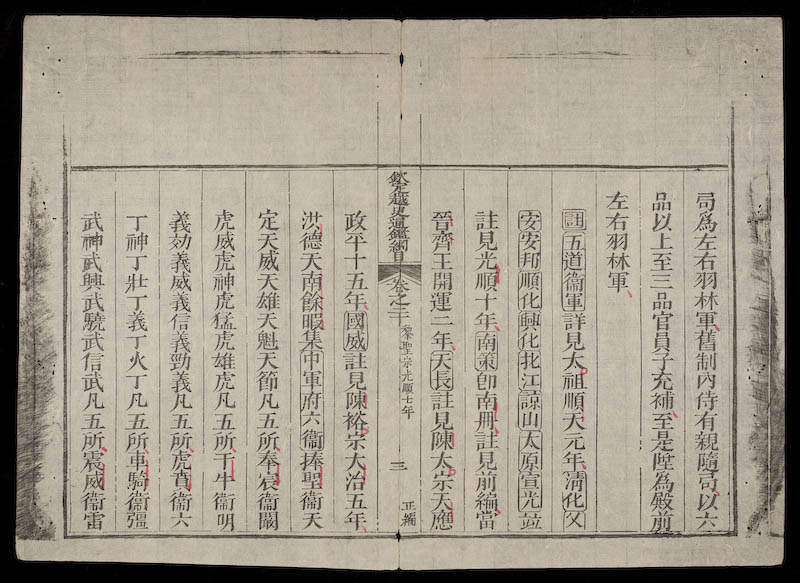 司爲左右羽林軍舊制內侍有親隨司以六
品以上至三品官員子充補至是陞爲殿前
左右羽林軍
註五道衞軍詳見太祖順天元年淸化乂
安安邦順化興化北江諒山太原宣光並
註見光順十年南策卽南冊註見前編當
晉齊王開運二年天長註見陳太宗天應
欽定越史通鑑綱目 卷之二 黎聖宗光順七年 三 正編
政平十五年國威註見陳裕宗大治五年
洪德天南餘暇集中軍府六衞捧聖衞天
定天威天雄天魁天節凡五所奉宸衞闢
虎威虎神虎猛虎雄虎凡五所千牛衞明
義効義威義信義勁義凡五所虎賁衞六
丁神丁壯丁義丁火丁凡五所車騎衞彊
武神武興武驍武信武凡五所震威衞雷